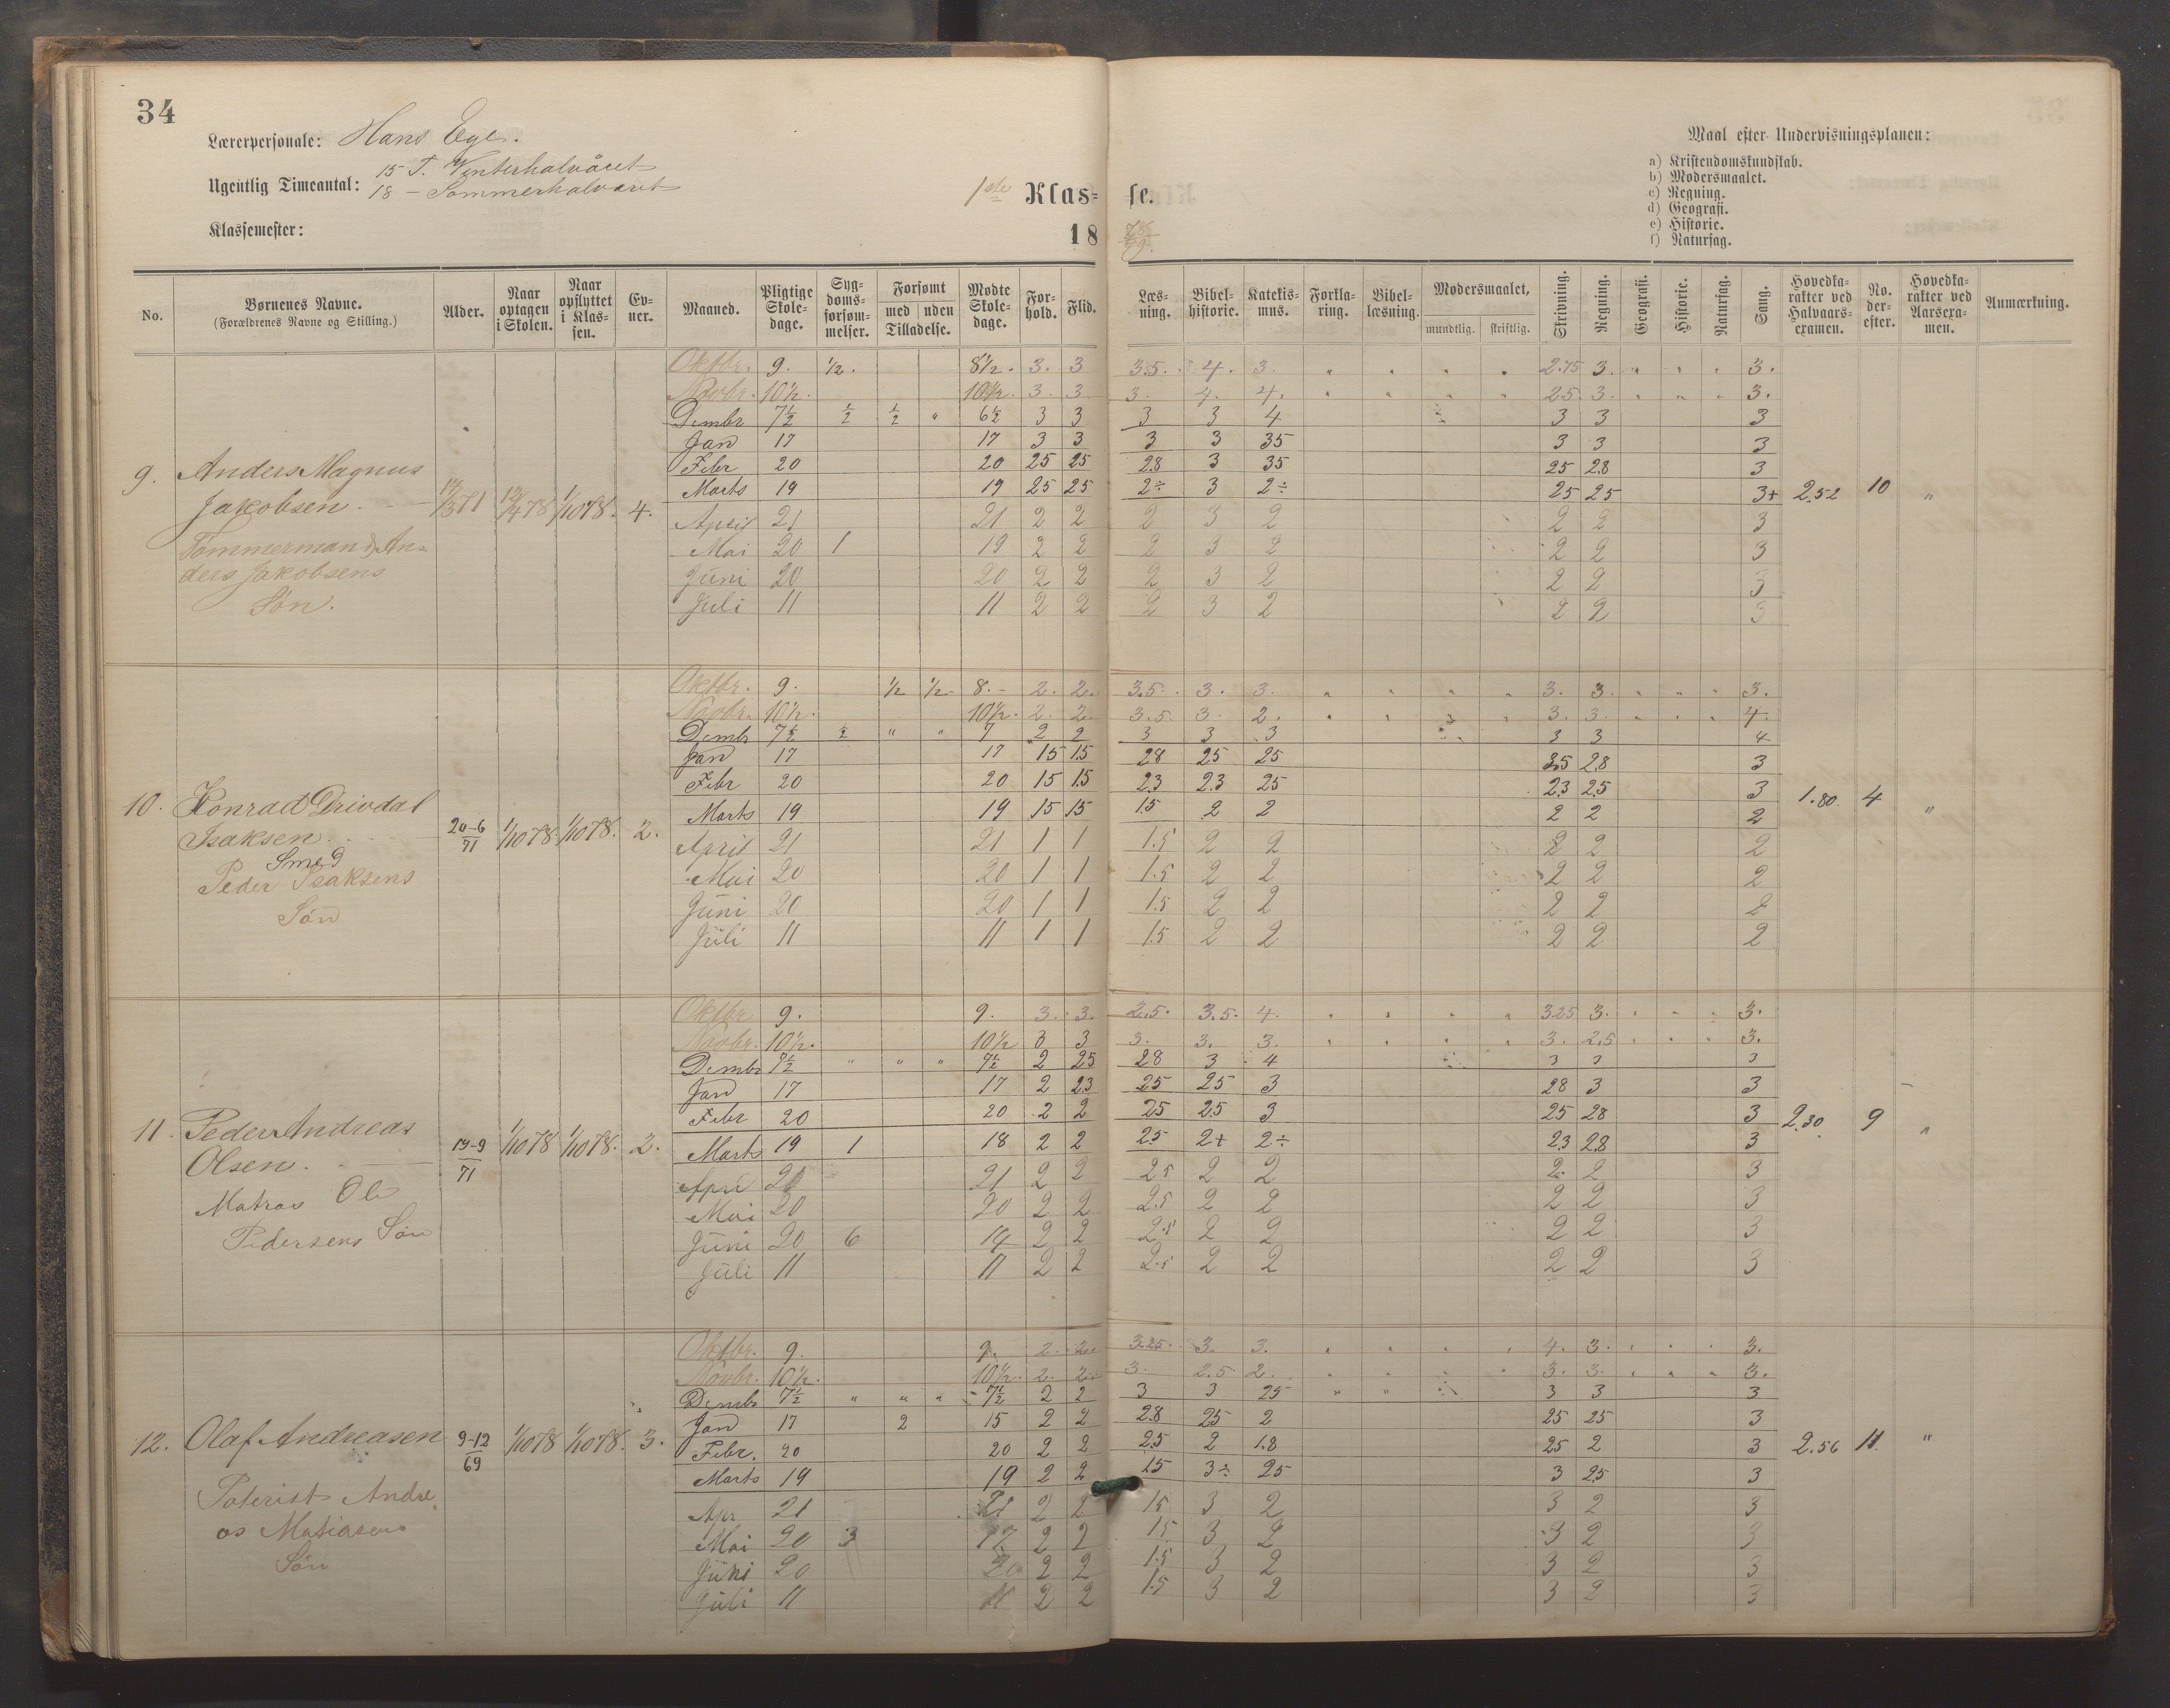 34
Lærerpersonale: Hans Ege.
Ugentlig Timeantal: 15 T. Vinterhalvåret
18 - Sommerhalvaaret
Klassemester:
1ste Klas= se.
18 78/79.
Maal efter Undervisningsplanen:
a) Kristendomskundskab.
b) Modersmaalet.
c) Regning.
d) Geografi.
e) Historie.
f) Naturfag.
No. | Børnenes Navne. (Forældrenes Navne og Stilling.) | Alder. | Naar optagen i Skolen. | Naar opflyttet i Klassen. | Evner. | Maaned. | Pligtige Skoledage. | Sygdomsforsømmelser. | Forsømt med uden Tilladelse. | Mødte Skoledage. | Forhold. | Flid. | Læsning. | Bibelhistorie. | Katekismus. | Forklaring. | Bibellæsning. | Modersmaalet, mundtlig. skriftlig. | Skrivning. | Regning. | Geografi. | Historie. | Naturfag. | Sang. | Hovedkarakter ved Halvaarsexamen. | No. derefter. | Hovedkarakter ved Aarsexamen. | Anmærkning.
9. Anders Magnus Jakobsen. 14/3 71 12/4 78 1/10 78. 4. 2.52 10 "
Tømmermand Anders Jakobsens Søn.
Oktbr. 9. 1/2. 8 1/2. 3. 3 3.5. 4. 3. " " " " 2.75 3. " " " 3.
Novbr. 10 1/2. 10 1/2. 3. 3. 3. 4. 4. " " " " 25. 3. " " " 3.
Dembr 7 1/2 1/2 1/2 " 6 1/2 3 3 3 3 4 3 3 3
Jan 17 17 3 3 3 3 35 3 3 3
Febr 20 20 25 25 28 3 35 25 28 3
Marts 19 19 25 25 2÷ 3 2÷ 25 25 3+
April 21 21 2 2 2 3 2 2 2 3
Mai 20 1 19 2 2 2 3 2 2 2 3
Juni 20 20 2 2 2 3 2 2 2 3
Juli 11 11 2 2 2 3 2 2 2 3
10. Konrad Drivdal Isaksen. 20-6/71 1/10 78. 1/10 78. 2. 1.80. 4 "
Smed Peder Isaksens Søn
Oktbr. 9. 1/2 1/2 8. 2. 2. 3.5. 3. 3. " " " " 3. 3. " " " 3.
Novbr. 10 1/2. 10 1/2. 2. 2. 3.5. 3. 2. " " " " 3. 3. " " " 4.
Dembr 7 1/2 1/2 " " 7 2 2 3 3 3 3 3 4
Jan 17 17 15 15 28 25 25 35 28 3
Febr 20 20 15 15 23 23 25 23 25 3
Marts 19 19 15 15 15 2 2 2 2 2
April 21 21 1 1 1.5 2 2 2 2 2
Mai 20 20 1 1 1.5 2 2 2 2 2
Juni 20 20 1 1 1.5 2 2 2 2 2
Juli 11 11 1 1 1.5 2 2 2 2 2
11. Peder Andreas Olsen. 19-9/71 1/10 78 1/10 78. 2. 2.30. 9 "
Matros Ole Pedersens Søn
Oktbr 9. 9. 3. 3. 2.5. 3.5. 4. " " " " 3.25 3. " " " 3.
Novbr. 10 1/2. 10 1/2 3 3 3. 3. 3. " " " " 3. 2.5 " " " 3.
Dembr 7 1/2 " " " 7 1/2 2 25 28 3 4 3 3 3
Jan 17 17 2 23 25 25 3 28 3 3
Febr 20 20 2 2 25 25 3 25 28 3
Marts 19 1 18 2 2 25 2+ 2÷ 23 28 3
April 21 21 2 2 2.5 2 2 2 2 3
Mai 20 20 2 2 2.5 2 2 2 2 3
Juni 20 6 14 2 2 2.5 2 2 2 2 3
Juli 11 11 2 2 2.5 2 2 2 2 3
12. Olaf Andreasen 9-12/69 1/10 78 1/10 78. 3. 2.56 11. "
Andreas Matiasens Søn
Oktbr. 9. 9. 2. 2. 3.25. 3. 3. " " " " 4. 3. " " " 3.
Novbr. 10 1/2. 10 1/2. 2. 2. 3. 2.5 2. " " " " 3. 3. " " " 3.
Dembr 7 1/2 " " " 7 1/2 2 2 3 3 25 " " 3 3 3
Jan 17 2 15 2 2 28 25 2 25 25 3
Febr. 20 20 2 2 25 2 1.8 25 2 3
Marts 19 19 2 2 15 3÷ 25 3 25 3
Apr 21 21 2 2 15 3 2 3 2 3
Mai 20 3 17 2 2 15 3 2 3 2 3
Juni 20 20 2 2 1.5 3 2 3 2 3
Juli 11 11 2 2 1.5 3 2 3 2 3